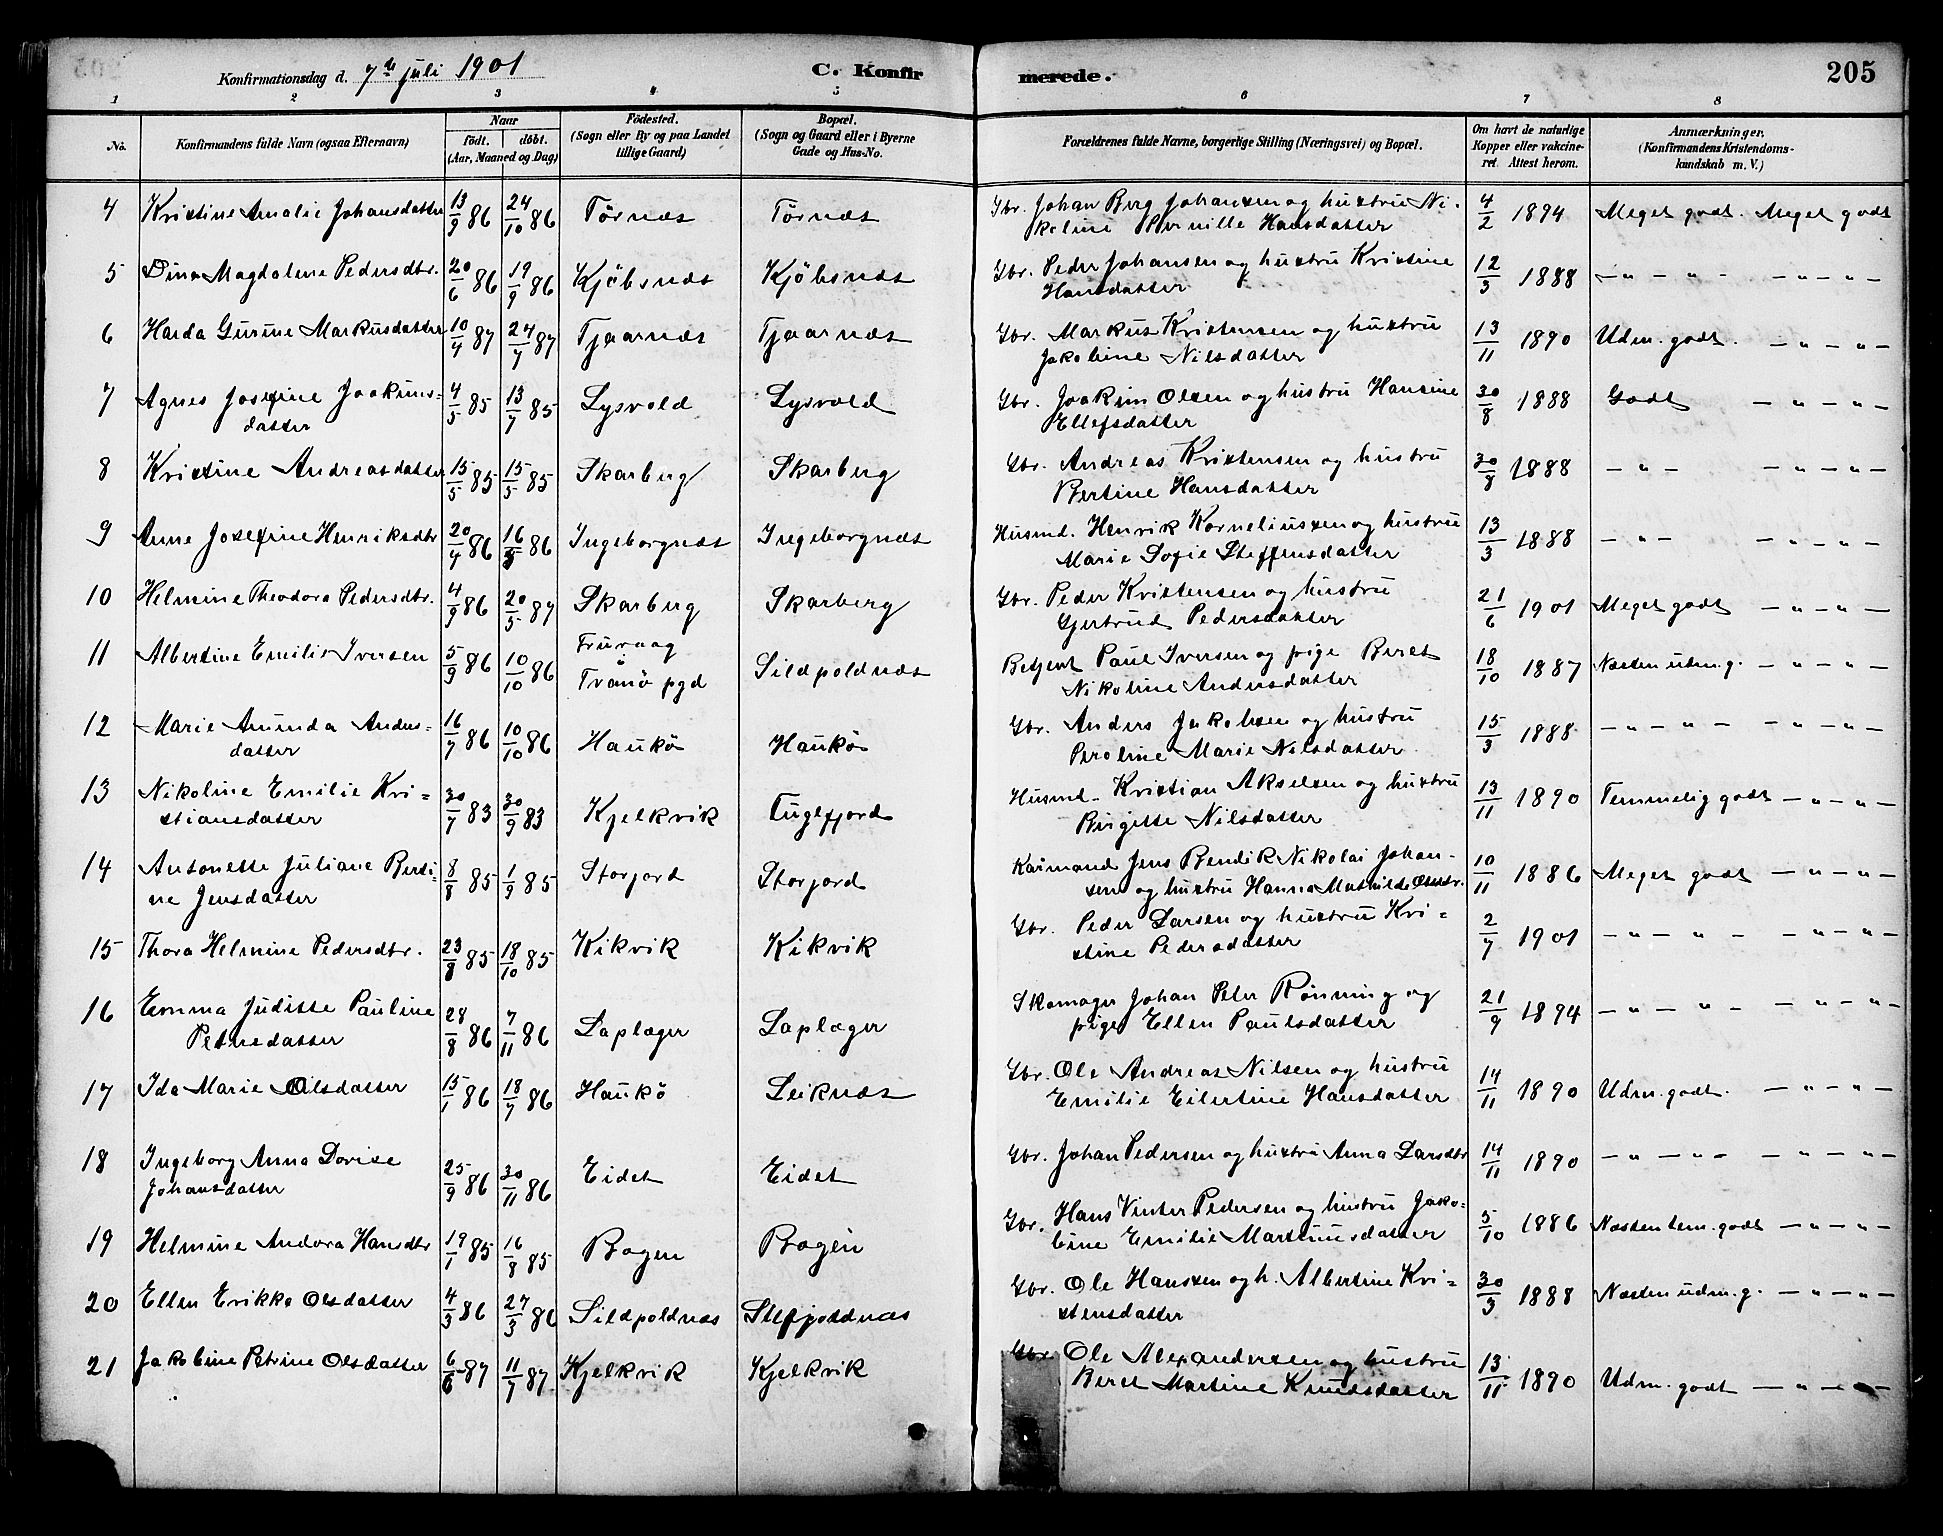 Konfirmationsdag d. 7de juli 1901 C. Konfirmerede. 205
1 2 3 4 5 6 7 8
No. Konfirmandens fulde Navn (ogsaa Efternavn) Naar født. døbt. (Aar, Maaned og Dag) Fødested. (Sogn eller By og paa Landet tillige Gaard) Bopæl. (Sogn og Gaard eller i Byerne Gade og Hus-No. Forældrenes fulde Navne, borgerlige Stilling (Næringsvei) og Bopæl. Om havt de naturlige Kopper eller vakcineret. Attest herom. Anmærkninger. (Konfirmandens Kristendomskundskab m. V.)
4 Kristine Amalie Johansdatter 13/9 86 24/10 86 Tørnæs Tørnæs Gbr. Johan Berg Johansen og hustru Ni-
koline Pernille Hansdatter 4/2 1894 Meget godt. Meget godt
5 Dina Magdalene Pedersdtr. 20/6 86 19/9 86 Kjöbsnæs Kjöbsnæs Gbr. Peder Johansen og hustru Kristine
Hansdatter 12/3 1888 — " — " — — " — " —
6 Harda Gurine Markusdatter 10/4 87 24/7 87 Tjaarnæs Tjaarnæs Gbr. Markus Kristensen og hustru
Jakobine Nilsdatter 13/11 1890 Udm. godt. — " — " —
7 Agnes Josefine Joakims-
datter 4/5 85 13/7 85 Lysvold Lysvold Gbr. Joakim Olsen og hustru Hansine
Ellefsdatter 30/8 1888 Godt — " — " —
8 Kristine Andreasdatter 15/5 85 15/5 85 Skarberg Skarberg Gbr. Andreas Kristensen og hustru
Bertine Hansdatter 30/8 1888 — " — — " — " —
9 Anne Josefine Henriksdtr 20/4 86 16/5 86 Ingeborgnæs Ingeborgnæs Husmd. Henrik Korneliussen og hustru
Marie Sofie Steffensdatter 13/3 1888 — " — — " — " —
10 Helmine Theodora Pedersdtr. 4/9 86 20/5 87 Skarberg Skarberg Gbr. Peder Kristensen og hustru
Gjertrud Pedersdatter 21/6 1901 Meget godt — " — " —
11 Albertine Emilie Iversen 5/9 86 10/10 86
Tranö pgd Sildpoldnæs Betjent Paul Iversen og pige Beret
Nikoline Andersdatter 18/10 1887 Næsten udm. g. — " — " —
12 Marie Amunda Anders-
datter 16/7 86 10/10 86 Haukö Haukö Gbr. Anders Jakobsen og hustru
Peroline Marie Nilsdatter 15/3 1888 — " — " — — " — " —
13 Nikoline Emilie Kri-
stiansdatter 30/7 83 30/9 83 Kjelkvik Fuglefjord Husmd. Kristian Akselsen og hustru
Birgitte Nilsdatter 13/11 1890 Temmelig godt — " — " —
14 Antonette Juliane Berti-
ne Jensdatter 8/8 85 1/9 85 Storjord Storjord Kaarmand Jens Bendik Nikolai Johan-
sen og hustru Hanna Mathilde Olsdtr. 10/11 1886 Meget godt — " — " —
15 Thora Helmine Pedersdtr. 23/8 85 18/10 85 Kikvik Kikvik Gbr. Peder Larsen og hustru Kri-
stine Pedersdatter 2/7 1901 — " — " — — " — " —
16 Emma Juditte Pauline
Petrusdatter 28/8 86 7/11 86 Laplæger Laplæger Skomager Johan Peter Rönning og
pige Ellen Paulsdatter 21/9 1894 — " — " — — " — " —
17 Ida Marie Olsdatter 15/1 86 18/7 86 Haukö Leiknæs Gbr. Ole Andreas Nilsen og hustru
Emilie Eilertine Hansdatter 14/11 1890 Udm. godt. — " — " —
18 Ingeborg Anna Dorise
Johansdatter 25/9 86 30/11 86 Eidet Eidet Gbr. Johan Pedersen og hustru Anna Larsdtr 14/11 1890 — " — " — — " — " —
19 Helmine Andora Hansdtr 19/1 85 16/8 85 Bogen Bogen Gbr. Hans Vinter Pedersen og hustru Jako-
bine Emilie Martinusdatter 5/10 1886 Næsten tem. godt — " — " —
20 Ellen Erikka Olsdatter 4/3 86 27/3 86 Sildpoldnæs Gbr. Ole Hanssen og h. Albertine Kri-
stensdatter 30/3 1888 Næsten udm. g. — " — " —
21 Jakobine Petrine Olsdatter 6/6 87 11/7 87 Kjelkvik Kjelkvik Gbr. Ole Alexandersen og hustru
Beret Martine Knudsdatter 13/11 1890 Udm. godt — " — " —